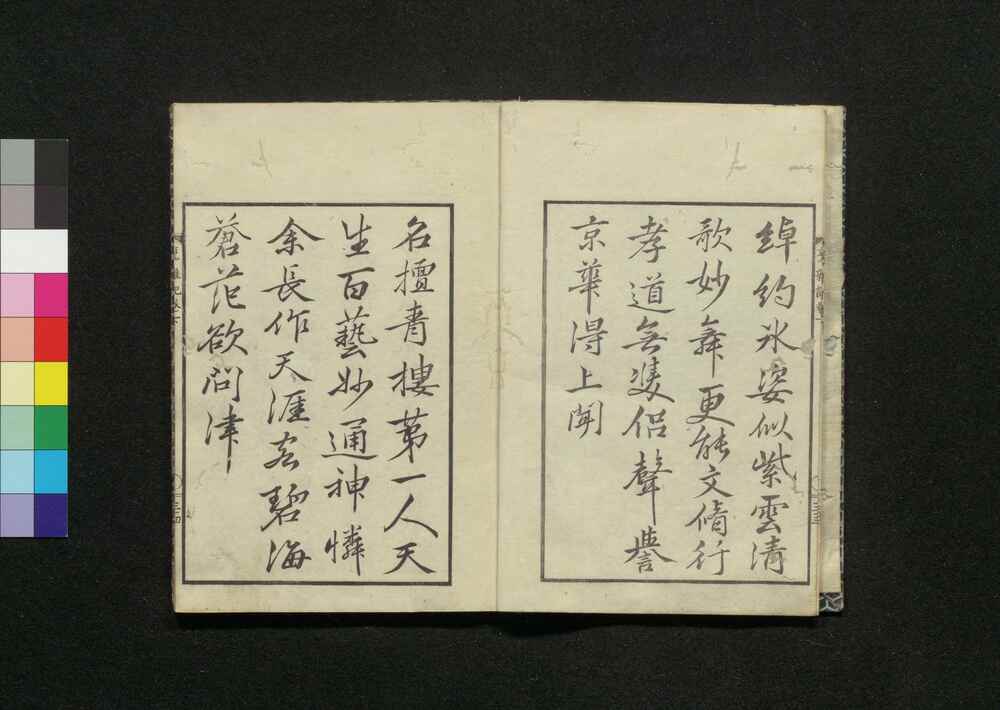 綽約氷姿似紫雲清
歌妙舞更能文脩行
孝道無雙侶聲譽
京華得上聞
名擅青樓第一人天
生百藝妙通神憐
余長作天涯客碧海
蒼茫欲問津